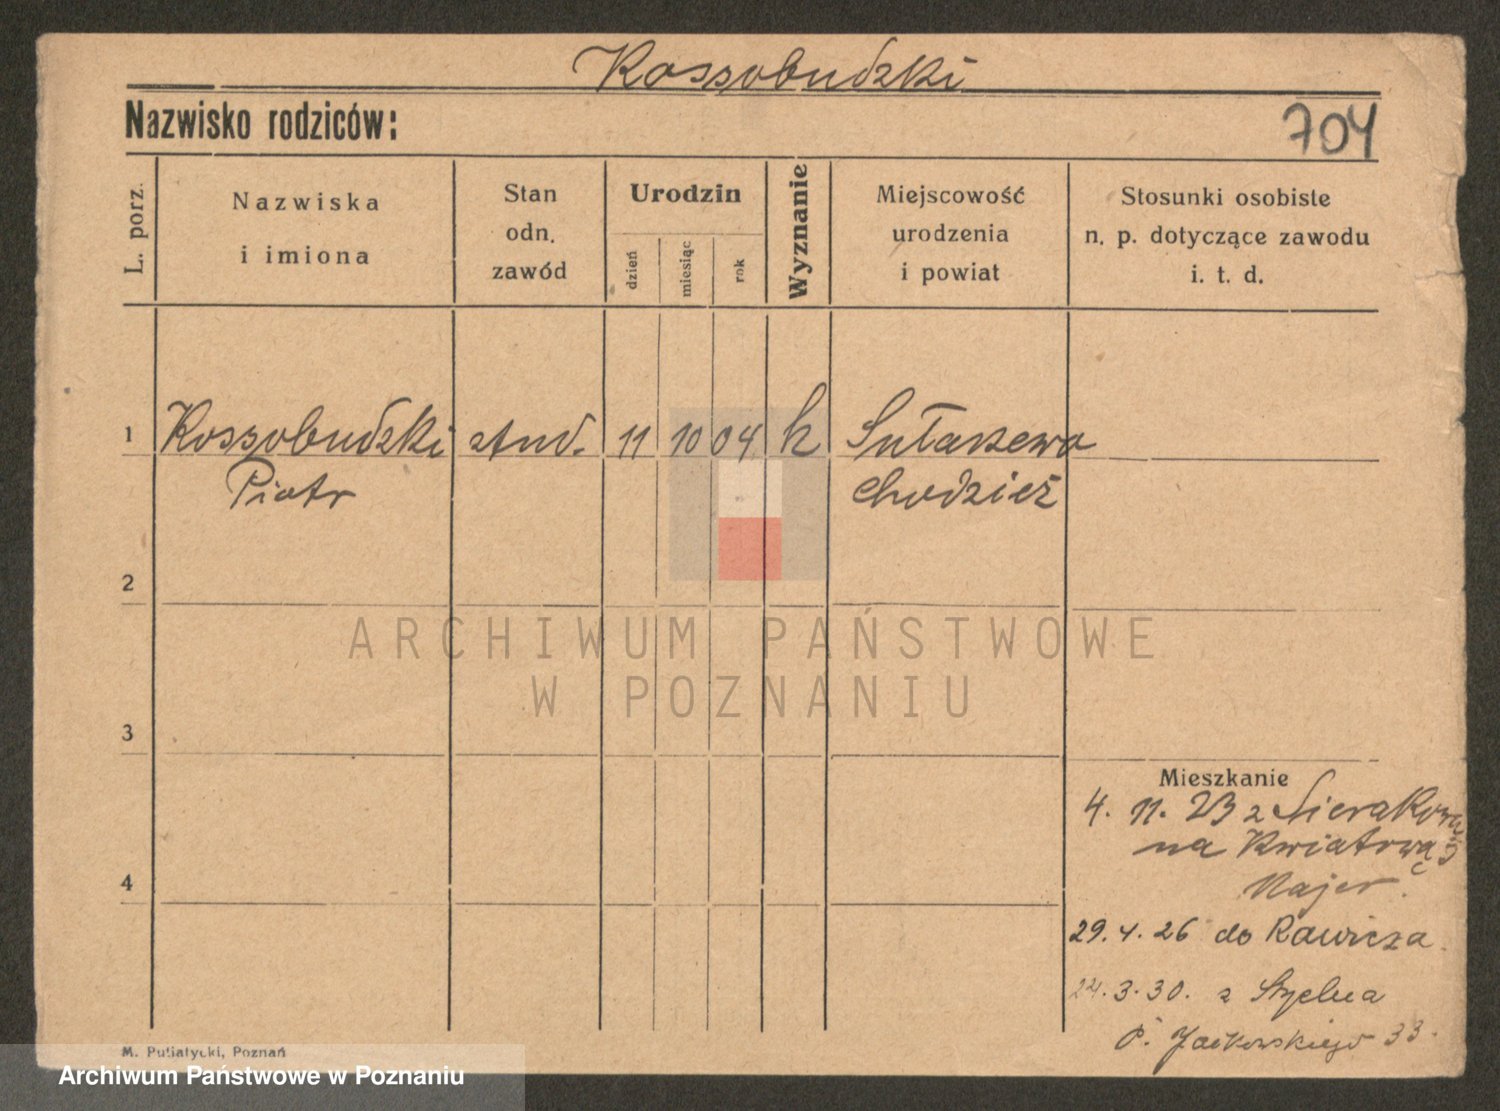 Kossobudzki
Nazwisko rodziców:
704
L. porz.
Nazwiska
i imiona
Stan
odn.
zawód
Urodzin
dzień
miesiąc
rok
Wyznanie
Miejscowość
urodzenia
i powiat
Stosunki osobiste
n. p. dotyczące zawodu
i. t. d.
1 Kossobudzki stud. 11 10 04 k Sułaszewo
Piotr Chodzież
2
3
4
ARCHIWUM PAŃSTWOWE
W POZNANIU
Mieszkanie
4. 11. 23 z Sierakowa
na Kwiatową
Najer
29. 4. 26 do Rawicza
24. 3. 30. z
P. Jackowskiego 33.
M. Putiatycki, Poznań
Archiwum Państwowe w Poznaniu